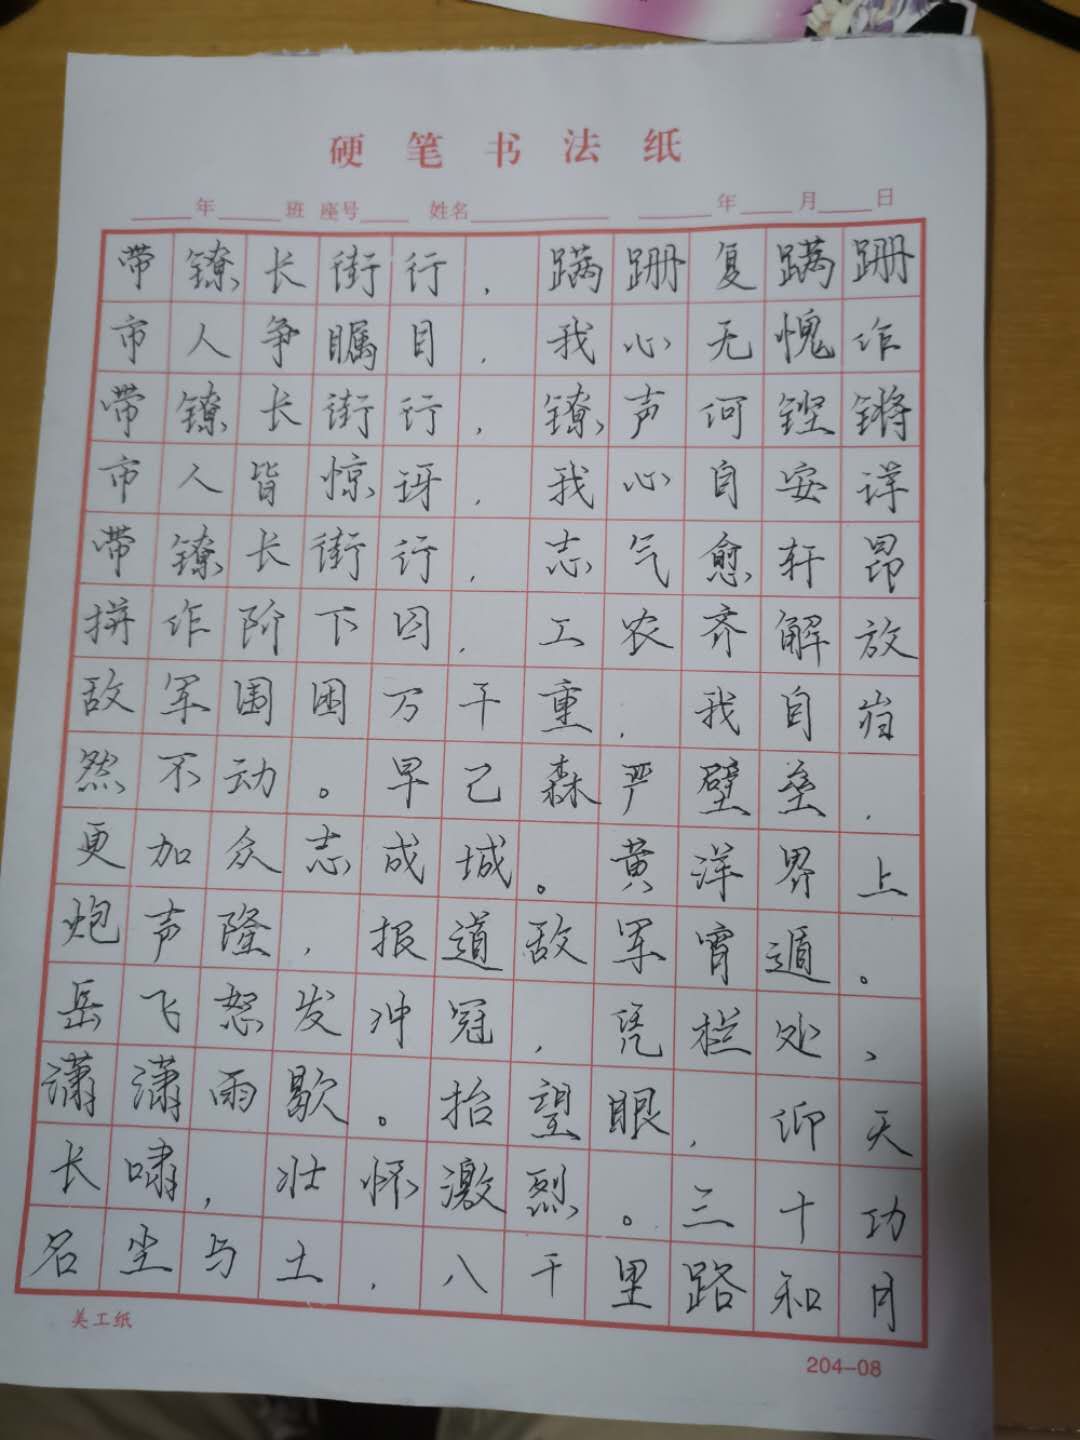 硬笔书法纸
年 班 座号 姓名 年 月 日
带镣长街行，蹒跚复蹒跚
市人争瞩目，我心无愧怍
带镣长街行，镣声何铿锵
市人皆惊讶，我心自安详
带镣长街行，志气愈轩昂
拼作阶下囚，工农齐解放
敌军围困万千重，我自岿
然不动。早已森严壁垒，
更加众志成城。黄洋界上
炮声隆，报道敌军宵遁。
岳飞怒发冲冠，凭栏处、
潇潇雨歇。抬望眼，仰天
长啸，壮怀激烈。三十功
名尘与土，八千里路和月
美工纸
204-08